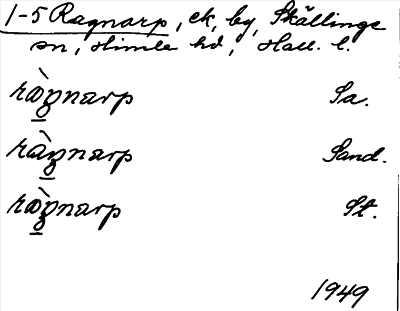 1-5 Ragnarp, ek, by, Skällinge
sn, Himle hd, Hall. l.
ràgnarp Sa.
ràgnarp Sand.
ràgnarp St.
1949